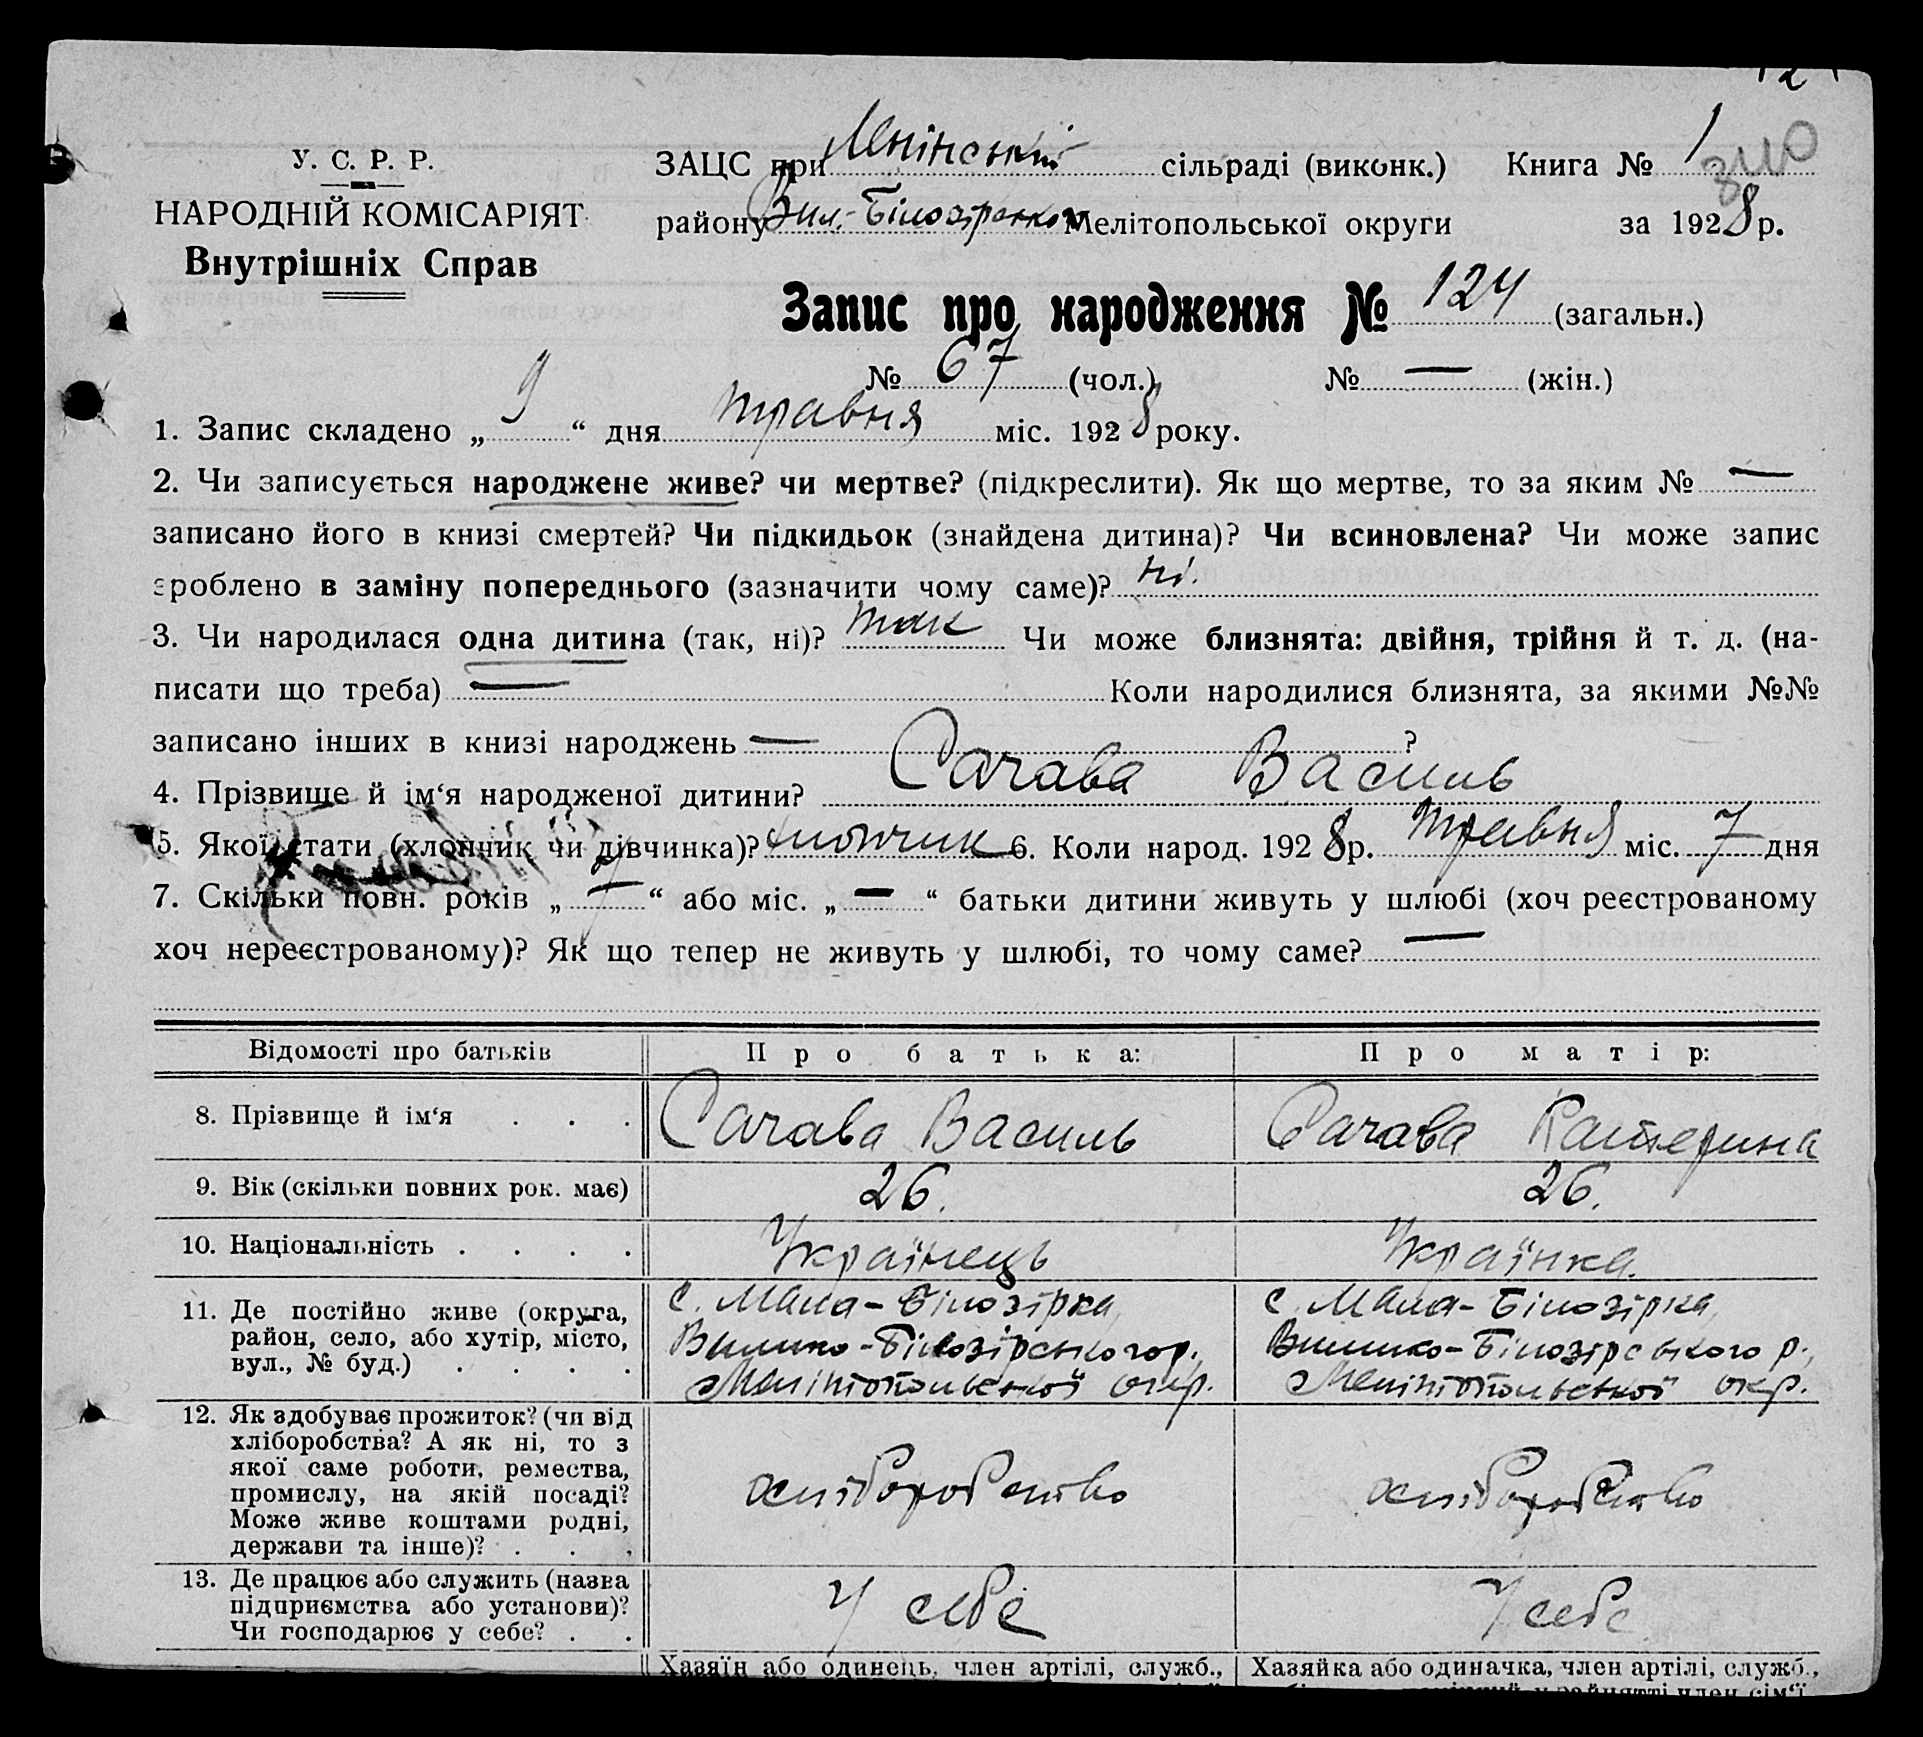 У. С. Р. Р.
НАРОДНІЙ КОМІСАРІЯТ
Внутрішніх Справ
ЗАЦС при Ленінській сільраді (виконк.) Книга № 1
району Вел.-Білозірсько Мелітопольської округи за 1928 р.
Запис про народження № 124 (загальн.)
№ 67 (чол.) № — (жін.)
1. Запис складено „ 9 “ дня травня міс. 1928 року.
2. Чи записується народжене живе? чи мертве? (підкреслити). Як що мертве, то за яким № —
записано його в книзі смертей? Чи підкидьок (знайдена дитина)? Чи всиновлена? Чи може запис
зроблено в заміну попереднього (зазначити чому саме)? ні.
3. Чи народилася одна дитина (так, ні)? так Чи може близнята: двійня, трійня й т. д. (на-
писати що треба) — Коли народилися близнята, за якими №№
записано інших в книзі народжень — ?
4. Прізвище й ім‘я народженої дитини? Сачава Василь
5. Якої стати (хлопчик чи дівчинка)? хлопчик 6. Коли народ. 1928 р. травня міс. 7 дня
7. Скільки повн. років „ 7 “ або міс. „ — “ батьки дитини живуть у шлюбі (хоч реєстрованому
хоч нереєстрованому)? Як що тепер не живуть у шлюбі, то чому саме? —
Відомості про батьків Про батька: Про матір:
8. Прізвище й ім‘я . . . Сачава Василь Сачава Катерина
9. Вік (скільки повних рок. має) 26. 26.
10. Національність . . . . Українець Українка.
11. Де постійно живе (округа, с. Мала-Білозірка, с. Мала-Білозірка,
район, село, або хутір, місто, Велико-Білозірського р., Велико-Білозірського р.,
вул., № буд.) . . . . Мелітопольської окр. Мелітопольської окр.
12. Як здобуває прожиток? (чи від
хліборобства? А як ні, то з
якої саме роботи, ремества,
промислу, на якій посаді? хліборобство хліборобство
Може живе коштами родні,
держави та інше)? . . .
13. Де працює або служить (назва
підприємства або установи)? У себе У себе
Чи господарює у себе? . .
Хазяїн або одинець, член артілі, служб., Хазяйка або одиначка, член артілі, служб.,